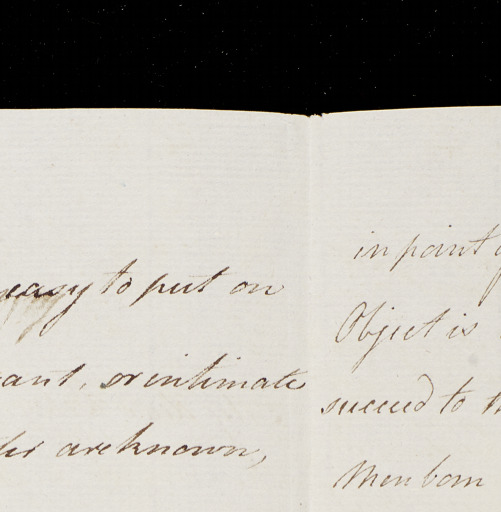 easy to put on
or intimate
are known,
in point
Object is
succeed to
Men born